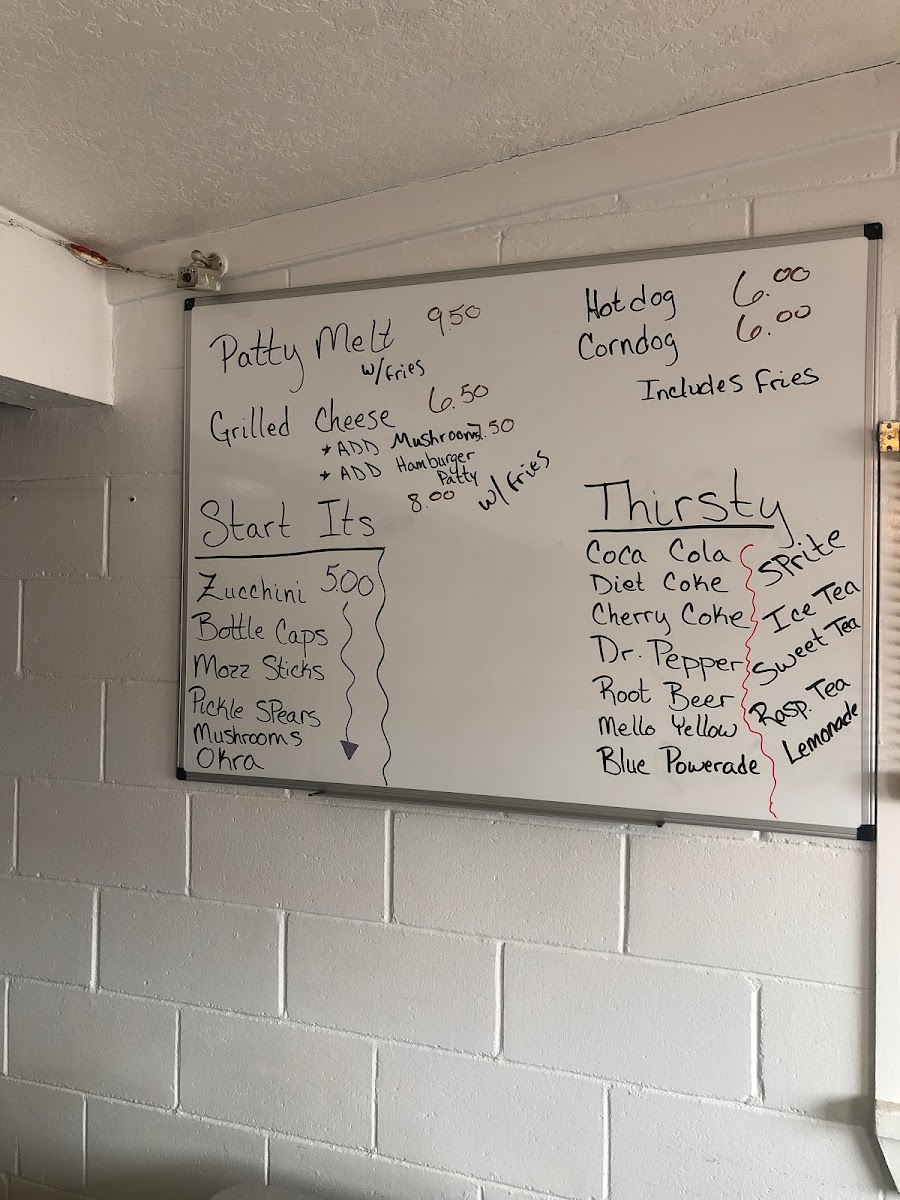 Patty Melt 9.50
w/fries
Grilled Cheese 6.50
* ADD Mushrooms 7.50
* ADD Hamburger
Patty
8.00 w/fries
Hotdog 6.00
Corndog 6.00
Includes Fries
Start Its
Zucchini 5.00
Bottle Caps
Mozz Sticks
Pickle Spears
Mushrooms
Okra
Thirsty
Coca Cola
Diet Coke
Cherry Coke
Dr. Pepper
Root Beer
Mello Yellow
Blue Powerade
Sprite
Ice Tea
Sweet Tea
Rasp. Tea
Lemonade